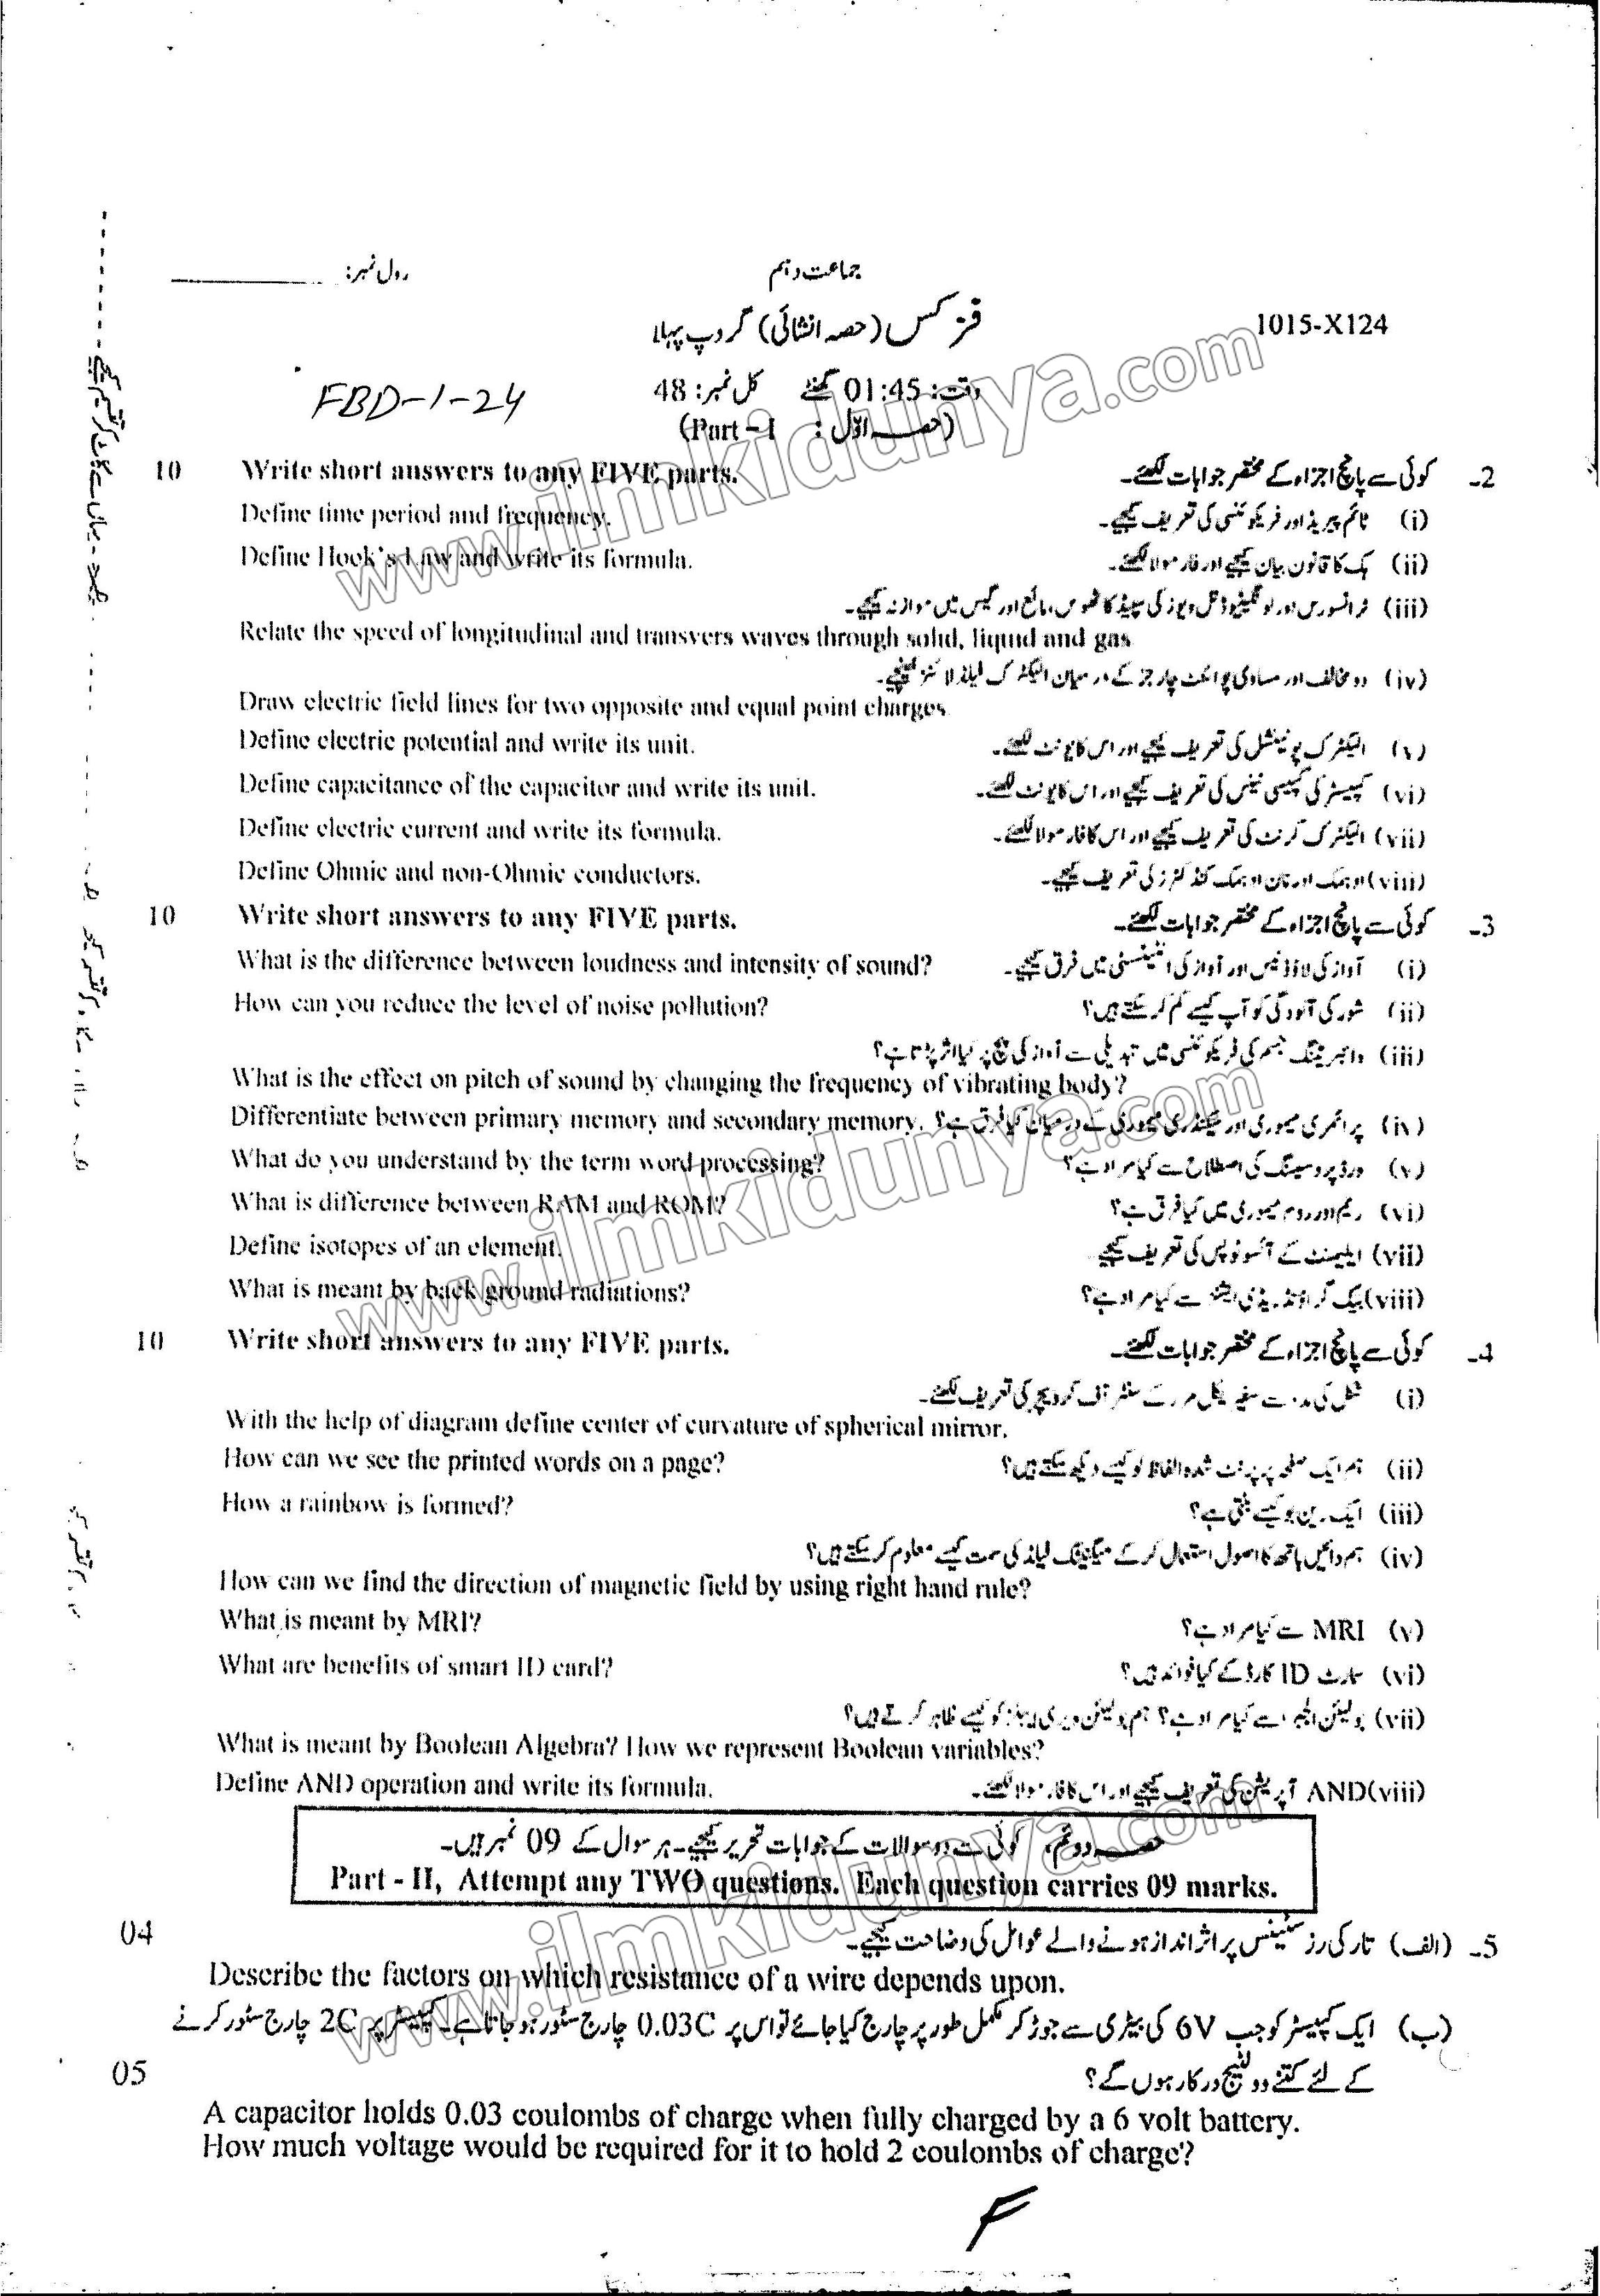 جماعت دہم
رول نمبر: ____________
فزکس (حصہ انشائی) گروپ پہلا
1015-X124
وقت: 01:45 گھنٹے کل نمبر: 48
FBD-1-24
(حصہ اوّل : Part - I)
10 Write short answers to any FIVE parts. کوئی سے پانچ اجزاء کے مختصر جوابات لکھئے۔ 2-
Define time period and frequency. ٹائم پیریڈ اور فریکوئنسی کی تعریف کیجیے۔ (i)
Define Hook's Law and write its formula. ہک کا قانون بیان کیجیے اور فارمولا لکھئے۔ (ii)
ٹرانسورس اور لونگیٹیوڈنل ویوز کی سپیڈ کا ٹھوس، مائع اور گیس میں موازنہ کیجیے۔ (iii)
Relate the speed of longitudinal and transvers waves through solid, liquid and gas
دو مخالف اور مساوی پوائنٹ چارجز کے درمیان الیکٹرک فیلڈ لائنز کھینچیے۔ (iv)
Draw electric field lines for two opposite and equal point charges
Define electric potential and write its unit. الیکٹرک پوٹینشل کی تعریف کیجیے اور اس کا یونٹ لکھئے۔ (v)
Define capacitance of the capacitor and write its unit. کپیسٹر کی کپیسی ٹینس کی تعریف کیجیے اور اس کا یونٹ لکھئے۔ (vi)
Define electric current and write its formula. الیکٹرک کرنٹ کی تعریف کیجیے اور اس کا فارمولا لکھئے۔ (vii)
Define Ohmic and non-Ohmic conductors. اوہمک اور نان اوہمک کنڈکٹرز کی تعریف کیجیے۔ (viii)
10 Write short answers to any FIVE parts. کوئی سے پانچ اجزاء کے مختصر جوابات لکھئے۔ 3-
What is the difference between loudness and intensity of sound? آواز کی لاؤڈنیس اور آواز کی انٹینسٹی میں فرق کیجیے۔ (i)
How can you reduce the level of noise pollution? شور کی آلودگی کو آپ کیسے کم کر سکتے ہیں؟ (ii)
وائبریٹنگ جسم کی فریکوئنسی میں تبدیلی سے آواز کی پچ پر کیا اثر پڑتا ہے؟ (iii)
What is the effect on pitch of sound by changing the frequency of vibrating body?
Differentiate between primary memory and secondary memory. پرائمری میموری اور سیکنڈری میموری کے درمیان کیا فرق ہے؟ (iv)
What do you understand by the term word processing? ورڈ پروسیسنگ کی اصطلاح سے کیا مراد ہے؟ (v)
What is difference between RAM and ROM? ریم اور روم میموری میں کیا فرق ہے؟ (vi)
Define isotopes of an element. ایلیمنٹ کے آئسوٹوپس کی تعریف کیجیے (vii)
What is meant by back ground radiations? بیک گراؤنڈ ریڈی ایشنز سے کیا مراد ہے؟ (viii)
10 Write short answers to any FIVE parts. کوئی سے پانچ اجزاء کے مختصر جوابات لکھئے۔ 4-
شکل کی مدد سے سفیریکل مرر کے سنٹر آف کرویچر کی تعریف لکھئے۔ (i)
With the help of diagram define center of curvature of spherical mirror.
How can we see the printed words on a page? ہم ایک صفحہ پر پرنٹ شدہ الفاظ کو کیسے دیکھ سکتے ہیں؟ (ii)
How a rainbow is formed? ایک رین بو کیسے بنتی ہے؟ (iii)
ہم دائیں ہاتھ کا اصول استعمال کر کے میگنیٹک فیلڈ کی سمت کیسے معلوم کر سکتے ہیں؟ (iv)
How can we find the direction of magnetic field by using right hand rule?
What is meant by MRI? MRI سے کیا مراد ہے؟ (v)
What are benefits of smart ID card? سمارٹ ID کارڈ کے کیا فوائد ہیں؟ (vi)
بولیئن الجبرا سے کیا مراد ہے؟ ہم بولیئن ویری ایبلز کو کیسے ظاہر کرتے ہیں؟ (vii)
What is meant by Boolean Algebra? How we represent Boolean variables?
Define AND operation and write its formula. AND آپریشن کی تعریف کیجیے اور اس کا فارمولا لکھئے۔ (viii)
حصہ دوئم، کوئی سے دو سوالات کے جوابات تحریر کیجیے۔ ہر سوال کے 09 نمبر ہیں۔
Part - II, Attempt any TWO questions. Each question carries 09 marks.
04 (الف) تار کی رزسٹینس پر اثر انداز ہونے والے عوامل کی وضاحت کیجیے۔ 5-
Describe the factors on which resistance of a wire depends upon.
(ب) ایک کپیسٹر کو جب 6V کی بیٹری سے جوڑ کر مکمل طور پر چارج کیا جائے تو اس پر 0.03C چارج سٹور ہو جاتا ہے۔ کپیسٹر پر 2C چارج سٹور کرنے
05 کے لئے کتنے وولٹیج درکار ہوں گے؟
A capacitor holds 0.03 coulombs of charge when fully charged by a 6 volt battery.
How much voltage would be required for it to hold 2 coulombs of charge?
www.ilmkidunya.com
www.ilmkidunya.com
www.ilmkidunya.com